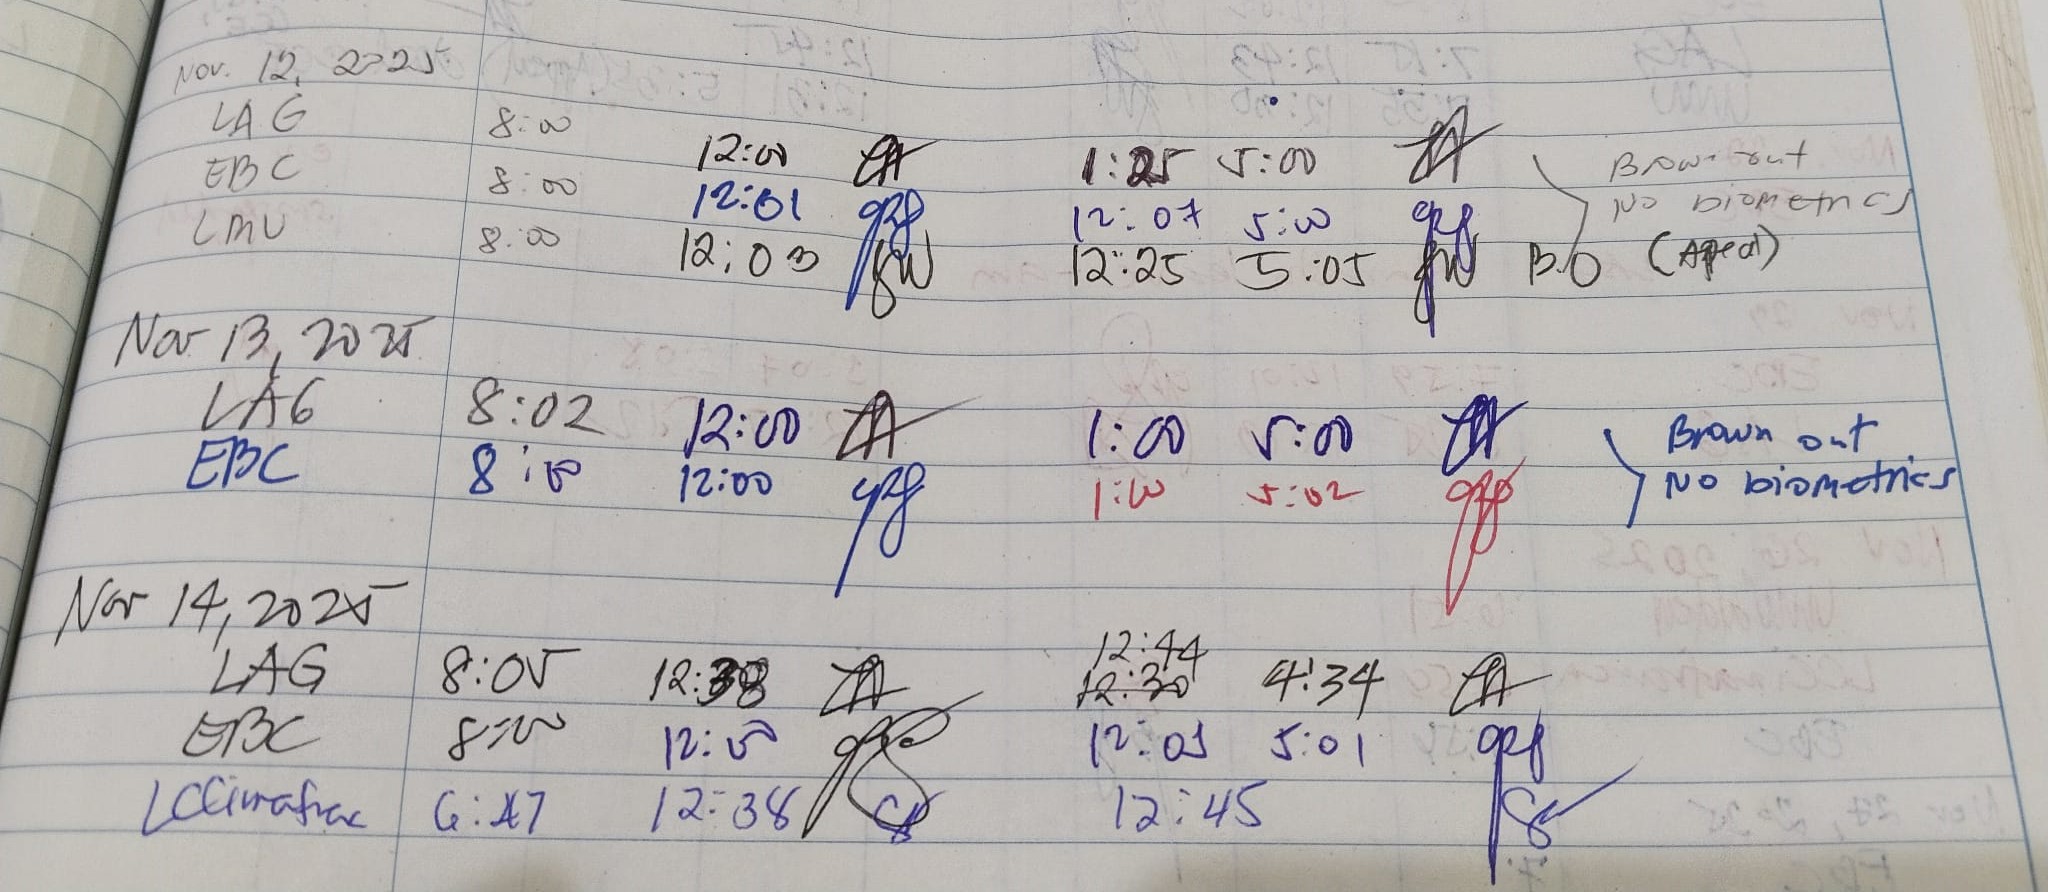 Nov. 12, 2025
LAG 8:00 12:00 1:25 5:00 Brown out
EBC 8:00 12:01 12:07 5:00 No biometrics
LMU 8:00 12:03 12:25 5:05 B.O (Apeal)
Nov 13, 2025
LAG 8:02 12:00 1:00 5:00 Brown out
EBC 8:00 12:00 1:00 5:02 No biometrics
Nov 14, 2025
12:44
LAG 8:05 12:38 12:30 4:34
EBC 8:00 12:00 12:05 5:01
6:47 12:38 12:45